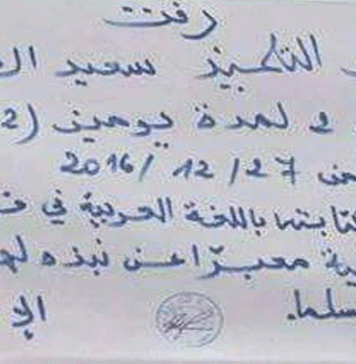 رفت
التلميذ سعيد ال
2 لمدة يومين (2
من 27/ 12 /2016
كتابته باللغة العربية في
ية معبرّا عن نبذه له
سلما.
الإ